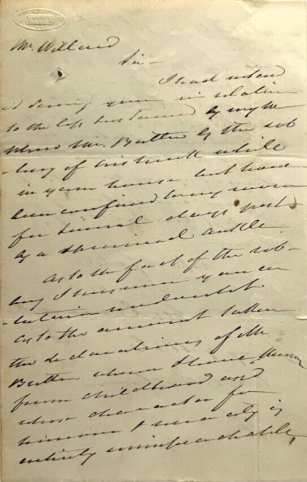 Mr. Willard
Sir —
I had intend
-ed seeing you in relation
to the loss sustained by my
Mr. Butler by the rob
-bery of his trunk while
in your house but have
been confined to my room
for several days past
by a sprained ankle.
As to the fact of the rob-
bery I presume you en
-tertain no doubt.
As to the amount taken
the declarations of Mr.
Butler whom I have known
from childhood and
whose character for
honour & veracity is
entirely unimpeachable,